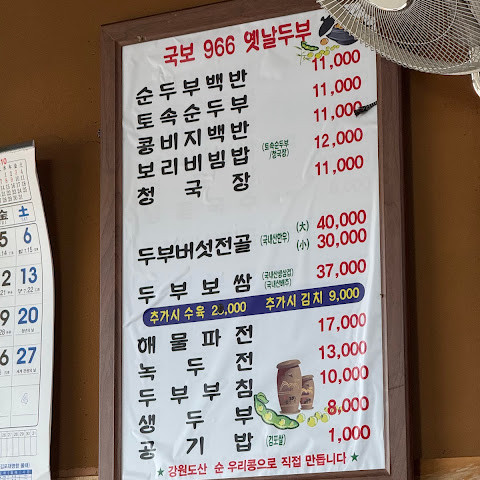 국보 966 옛날두부
순두부백반 11,000
토속순두부 11,000
콩비지백반 11,000
보리비빔밥 (토속순두부/청국장) 12,000
청국장 11,000
두부버섯전골 (국내산한우) (大) 40,000
(小) 30,000
두부보쌈 (국내산생삼겹) (국내산배추) 37,000
추가시 수육 추가시 김치 9,000
해물파전 17,000
녹두전 13,000
두부부침 10,000
생두부 8,000
공기밥 (김포쌀) 1,000
★ 강원도산 순 우리콩으로 직접 만듭니다 ★
10
金 土
5 6
12 13
19 20
26 27